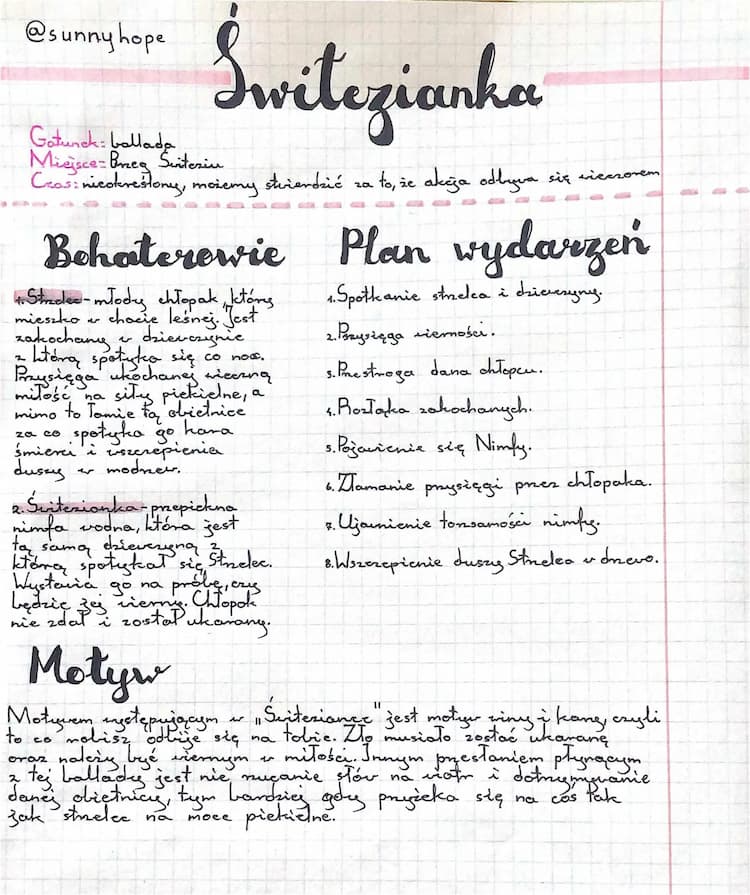 @sunnyhope
Świtezianka
Gatunek: ballada
Miejsce: Brzeg Świtezii
Czas: nieokreślony, możemy stwierdzić za to, że akcja odbywa się wieczorem
Bohaterowie
1. Strzelec - młody chłopak, który
mieszka w chacie leśnej. Jest
zakochany w dziewczynie
z którą spotyka się co noc.
Przysięga ukochanej wieczną
miłość na siły piekielne, a
mimo to łamie tą obietnice
za co spotyka go kara
śmierci i wszczepienia
duszy w modrzew.
2. Świtezianka - przepiękna
nimfa wodna, która jest
tą samą dziewczyną z
którą spotykał się Strzelec.
Wystawia go na próbę, czy
będzie jej wierny. Chłopak
nie zdał i został ukarany.
Plan wydarzeń
1. Spotkanie strzelca i dziewczyny.
2. Przysięga wierności.
3. Przestroga dana chłopcu.
4. Rozłąka zakochanych.
5. Pojawienie się Nimfy.
6. Złamanie przysięgi przez chłopaka.
7. Ujawnienie tożsamości nimfy.
8. Wszczepienie duszy Strzelca w drzewo.
Motyw
Motywem występującym w „Świteziance" jest motyw winy i kary, czyli
to co robisz odbije się na tobie. Zło musiało zostać ukarane
oraz należy być wiernym w miłości. Innym przesłaniem płynącym
z tej ballady jest nie rzucanie słów na wiatr i dotrzymywanie
danej obietnicy, tym bardziej gdy przyrzeka się na coś tak
jak strzelec na moce piekielne.